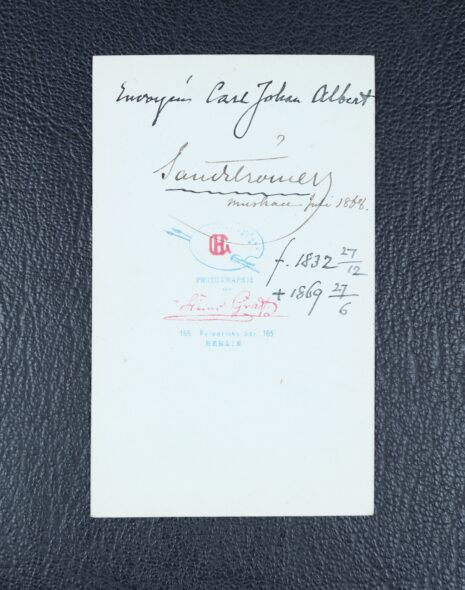 Envoyén Carl Johan Albert
Sandströmer
Juni 1868.
HG
f. 1832 27/12
+ 1869 27/6
PHOTOGRAPHIE
von
Heinr. Graf
165 Friedrichs Str. 165
BERLIN